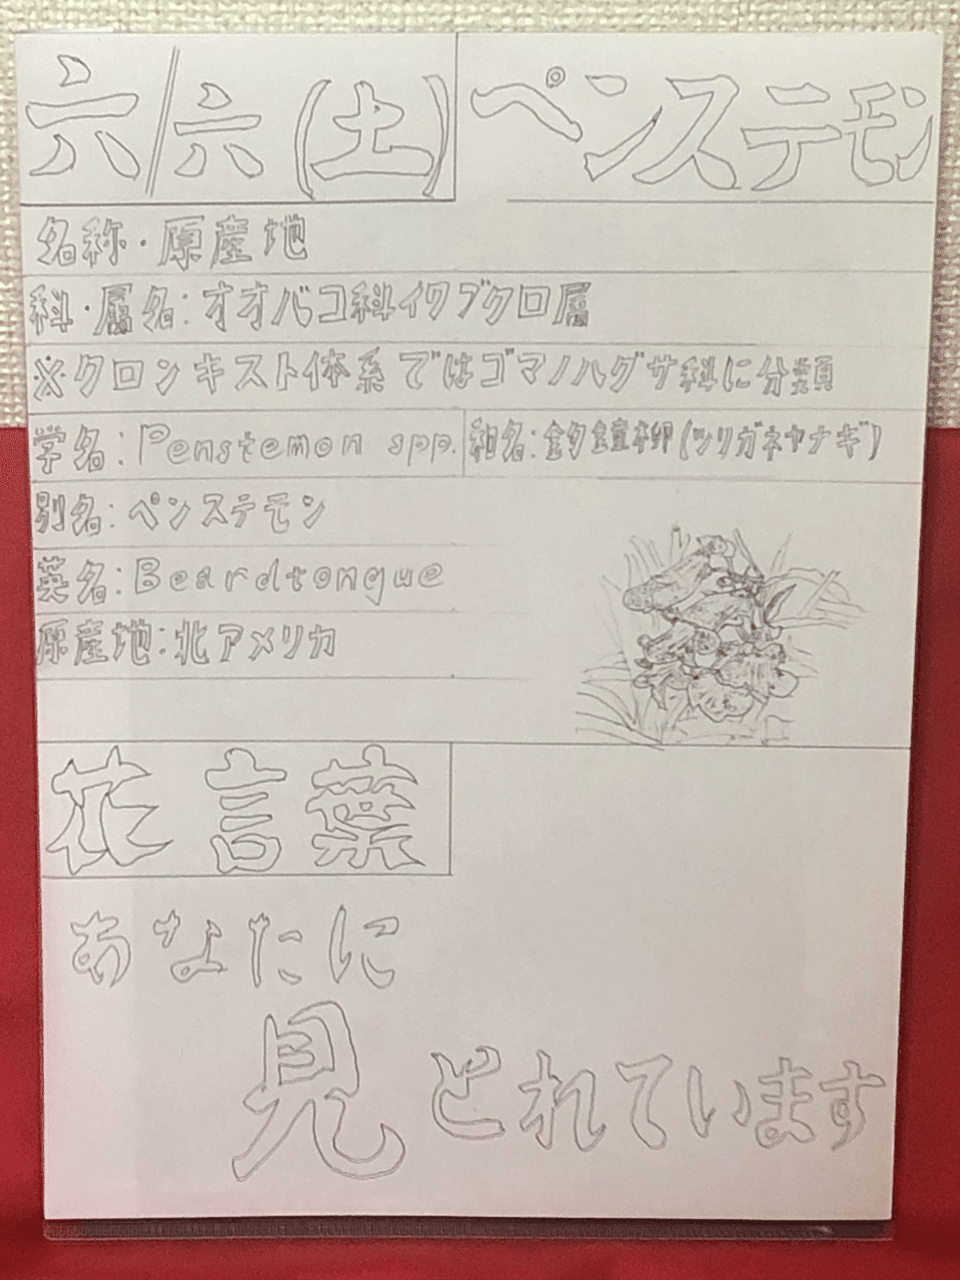 六/六(土) ペンステモン
名称・原産地
科・属名:オオバコ科イワブクロ属
※クロンキスト体系ではゴマノハグサ科に分類
学名:Penstemon spp. 和名:釣鐘柳(ツリガネヤナギ)
別名:ペンステモン
英名:Beardtongue
原産地:北アメリカ
花言葉
あなたに
見とれています